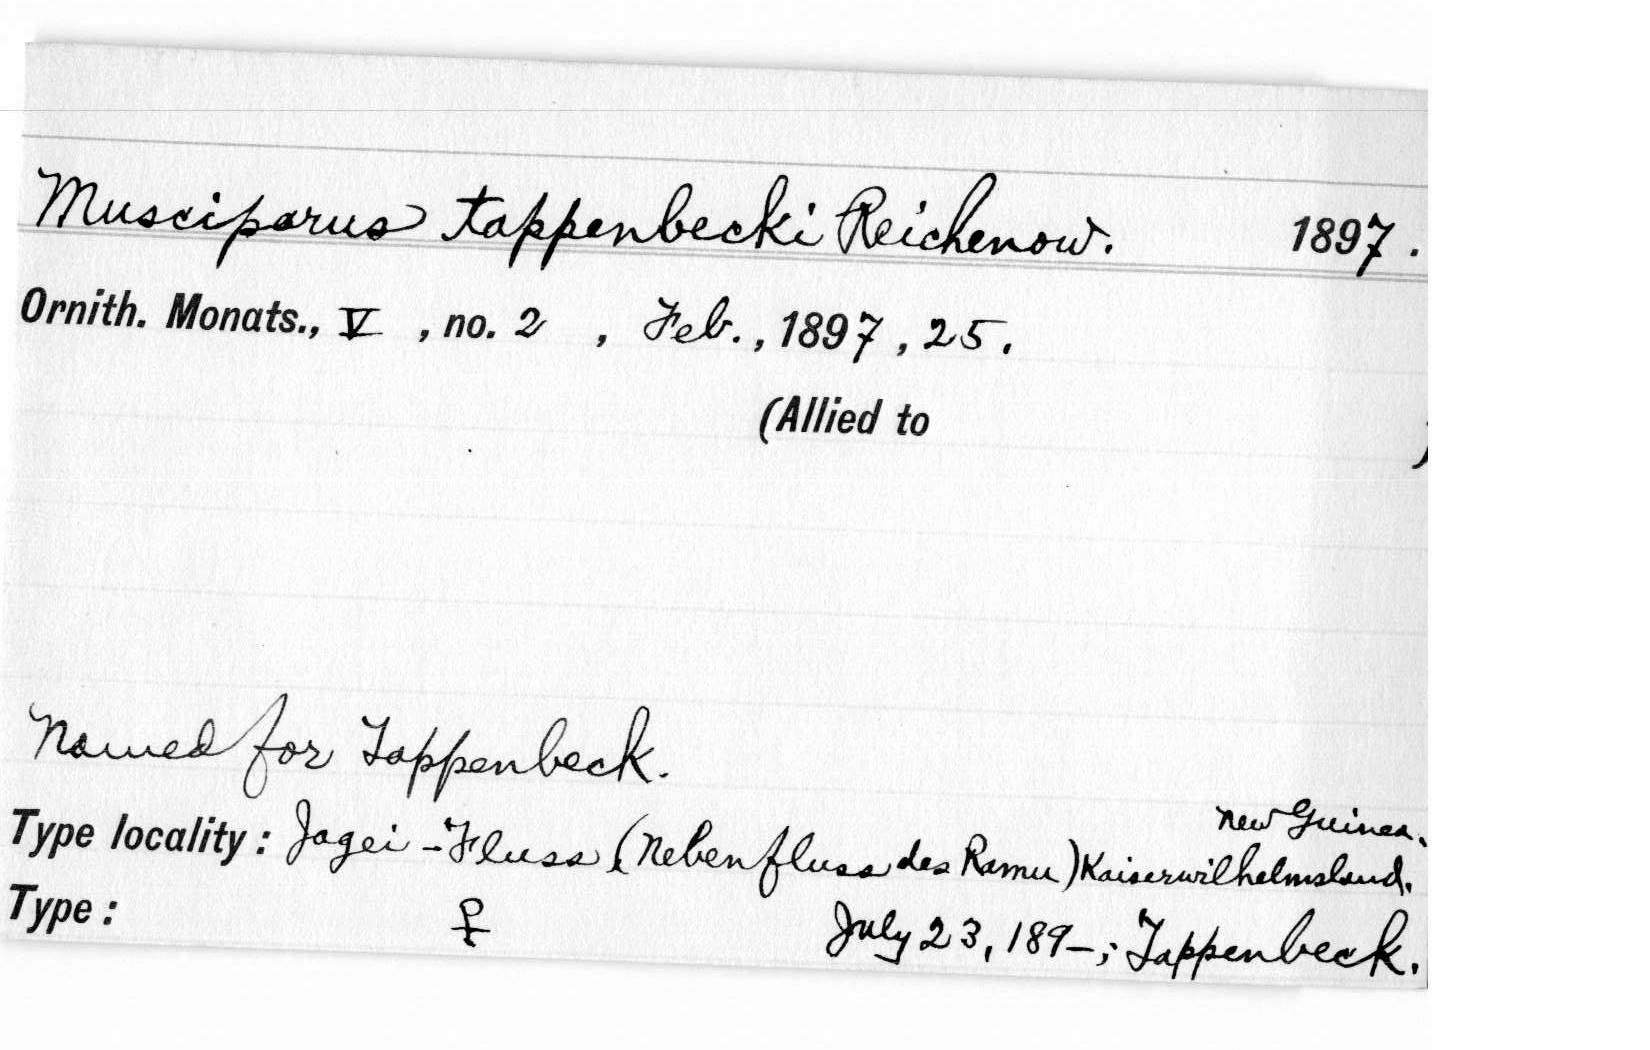 Musciparus tappenbecki Reichenow. 1897.
Ornith. Monats., V, no. 2, Feb., 1897, 25.
(Allied to )
Named for Tappenbeck.
New Guinea.
Type locality: Jagei-Fluss (Nebenfluss des Ramu) Kaiserwilhelmsland.
Type: ♀ July 23, 189–; Tappenbeck.